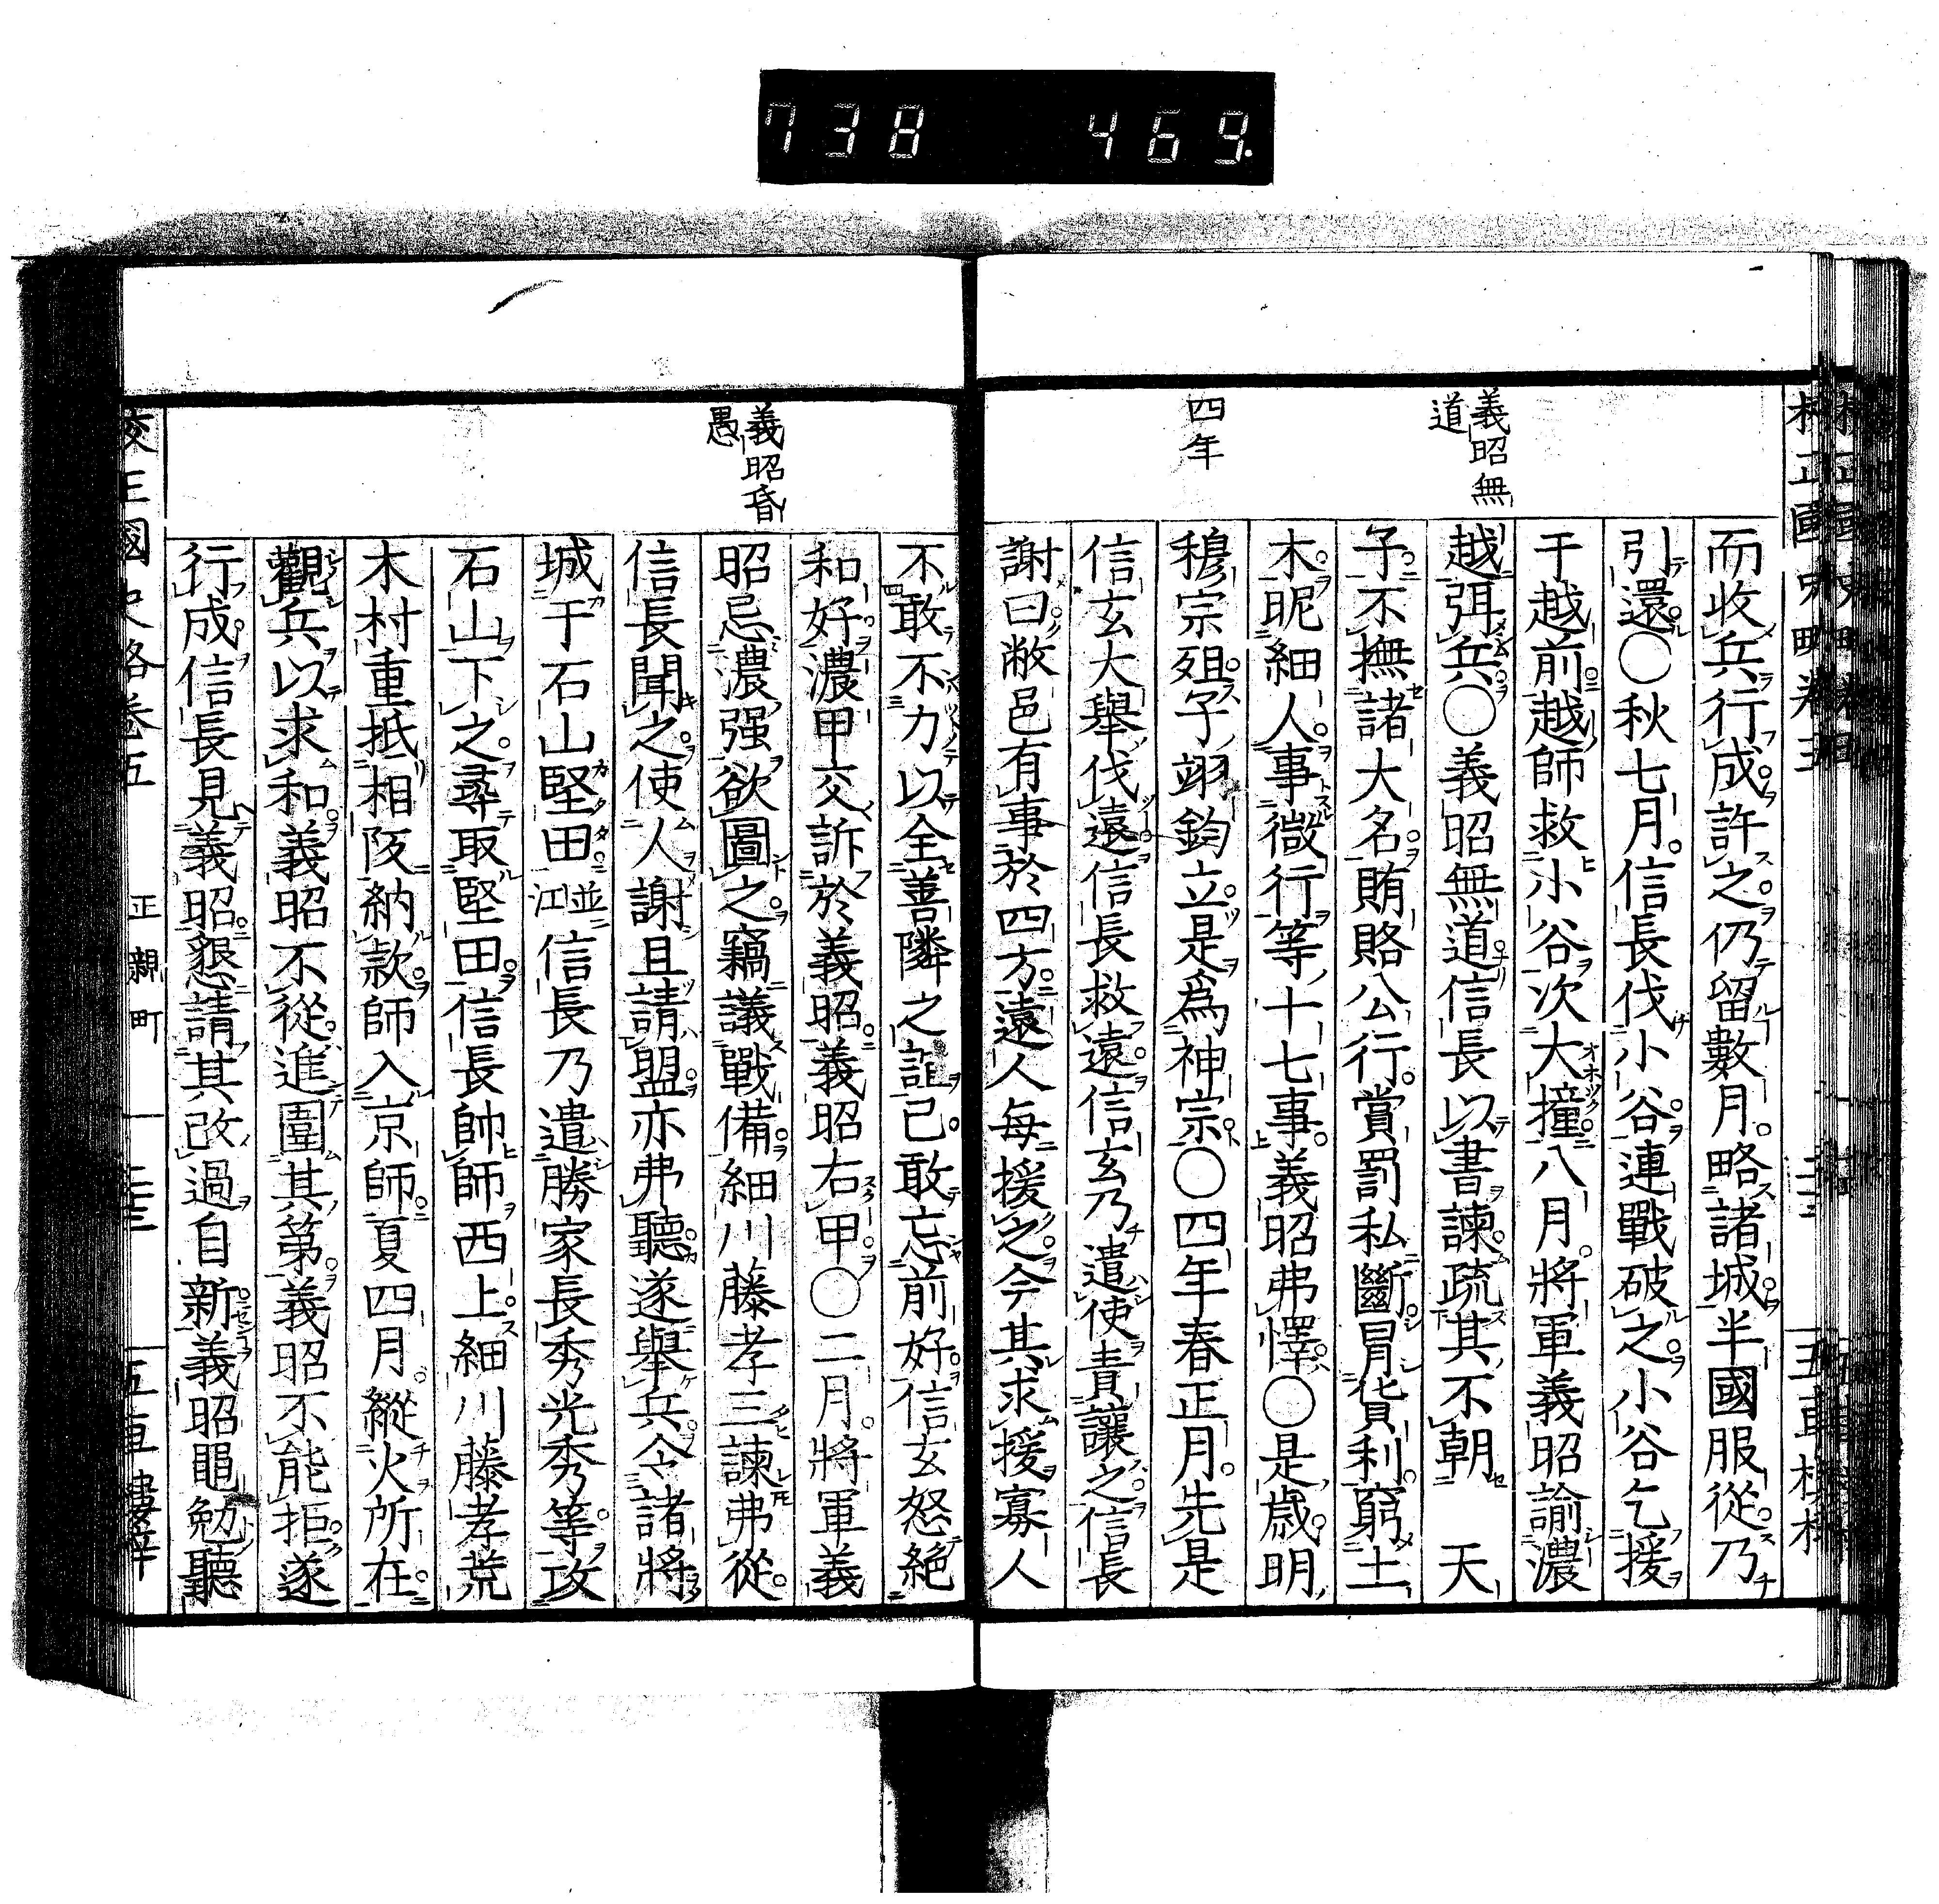 738 469.
義昭無
道
四年
而收兵行成許之仍留數月略諸城半國服從乃
引還〇秋七月信長伐小谷連戰破之小谷乞援
于越前越師救小谷次大撞八月將軍義昭諭濃
越弭兵〇義昭無道信長以書諫疏其不朝 天
子不撫諸大名賄賂公行賞罰私斷冒貨利窮土
木昵細人事微行等十七事義昭弗懌〇是歲明
穆宗殂子翊鈞立是爲神宗〇四年春正月先是
信玄大舉伐遠信長救遠信玄乃遣使責讓之信長
謝曰敝邑有事於四方遠人每援之今其求援寡人
義昭昏
愚
不敢不力以全善隣之誼已敢忘前好信玄怒絶
和好濃甲交訴於義昭義昭右甲〇二月將軍義
昭忌濃强欲圖之竊議戰備細川藤孝三諫弗從
信長聞之使人謝且請盟亦弗聽遂舉兵令諸將
城于石山堅田並江信長乃遣勝家長秀光秀等攻
石山下之尋取堅田信長帥師西上細川藤孝荒
木村重抵相阪納款師入京師夏四月縱火所在
觀兵以求和義昭不從進圍其第義昭不能拒遂
行成信長見義昭懇請其改過自新義昭黽勉聽
校正國史略卷五 正親町